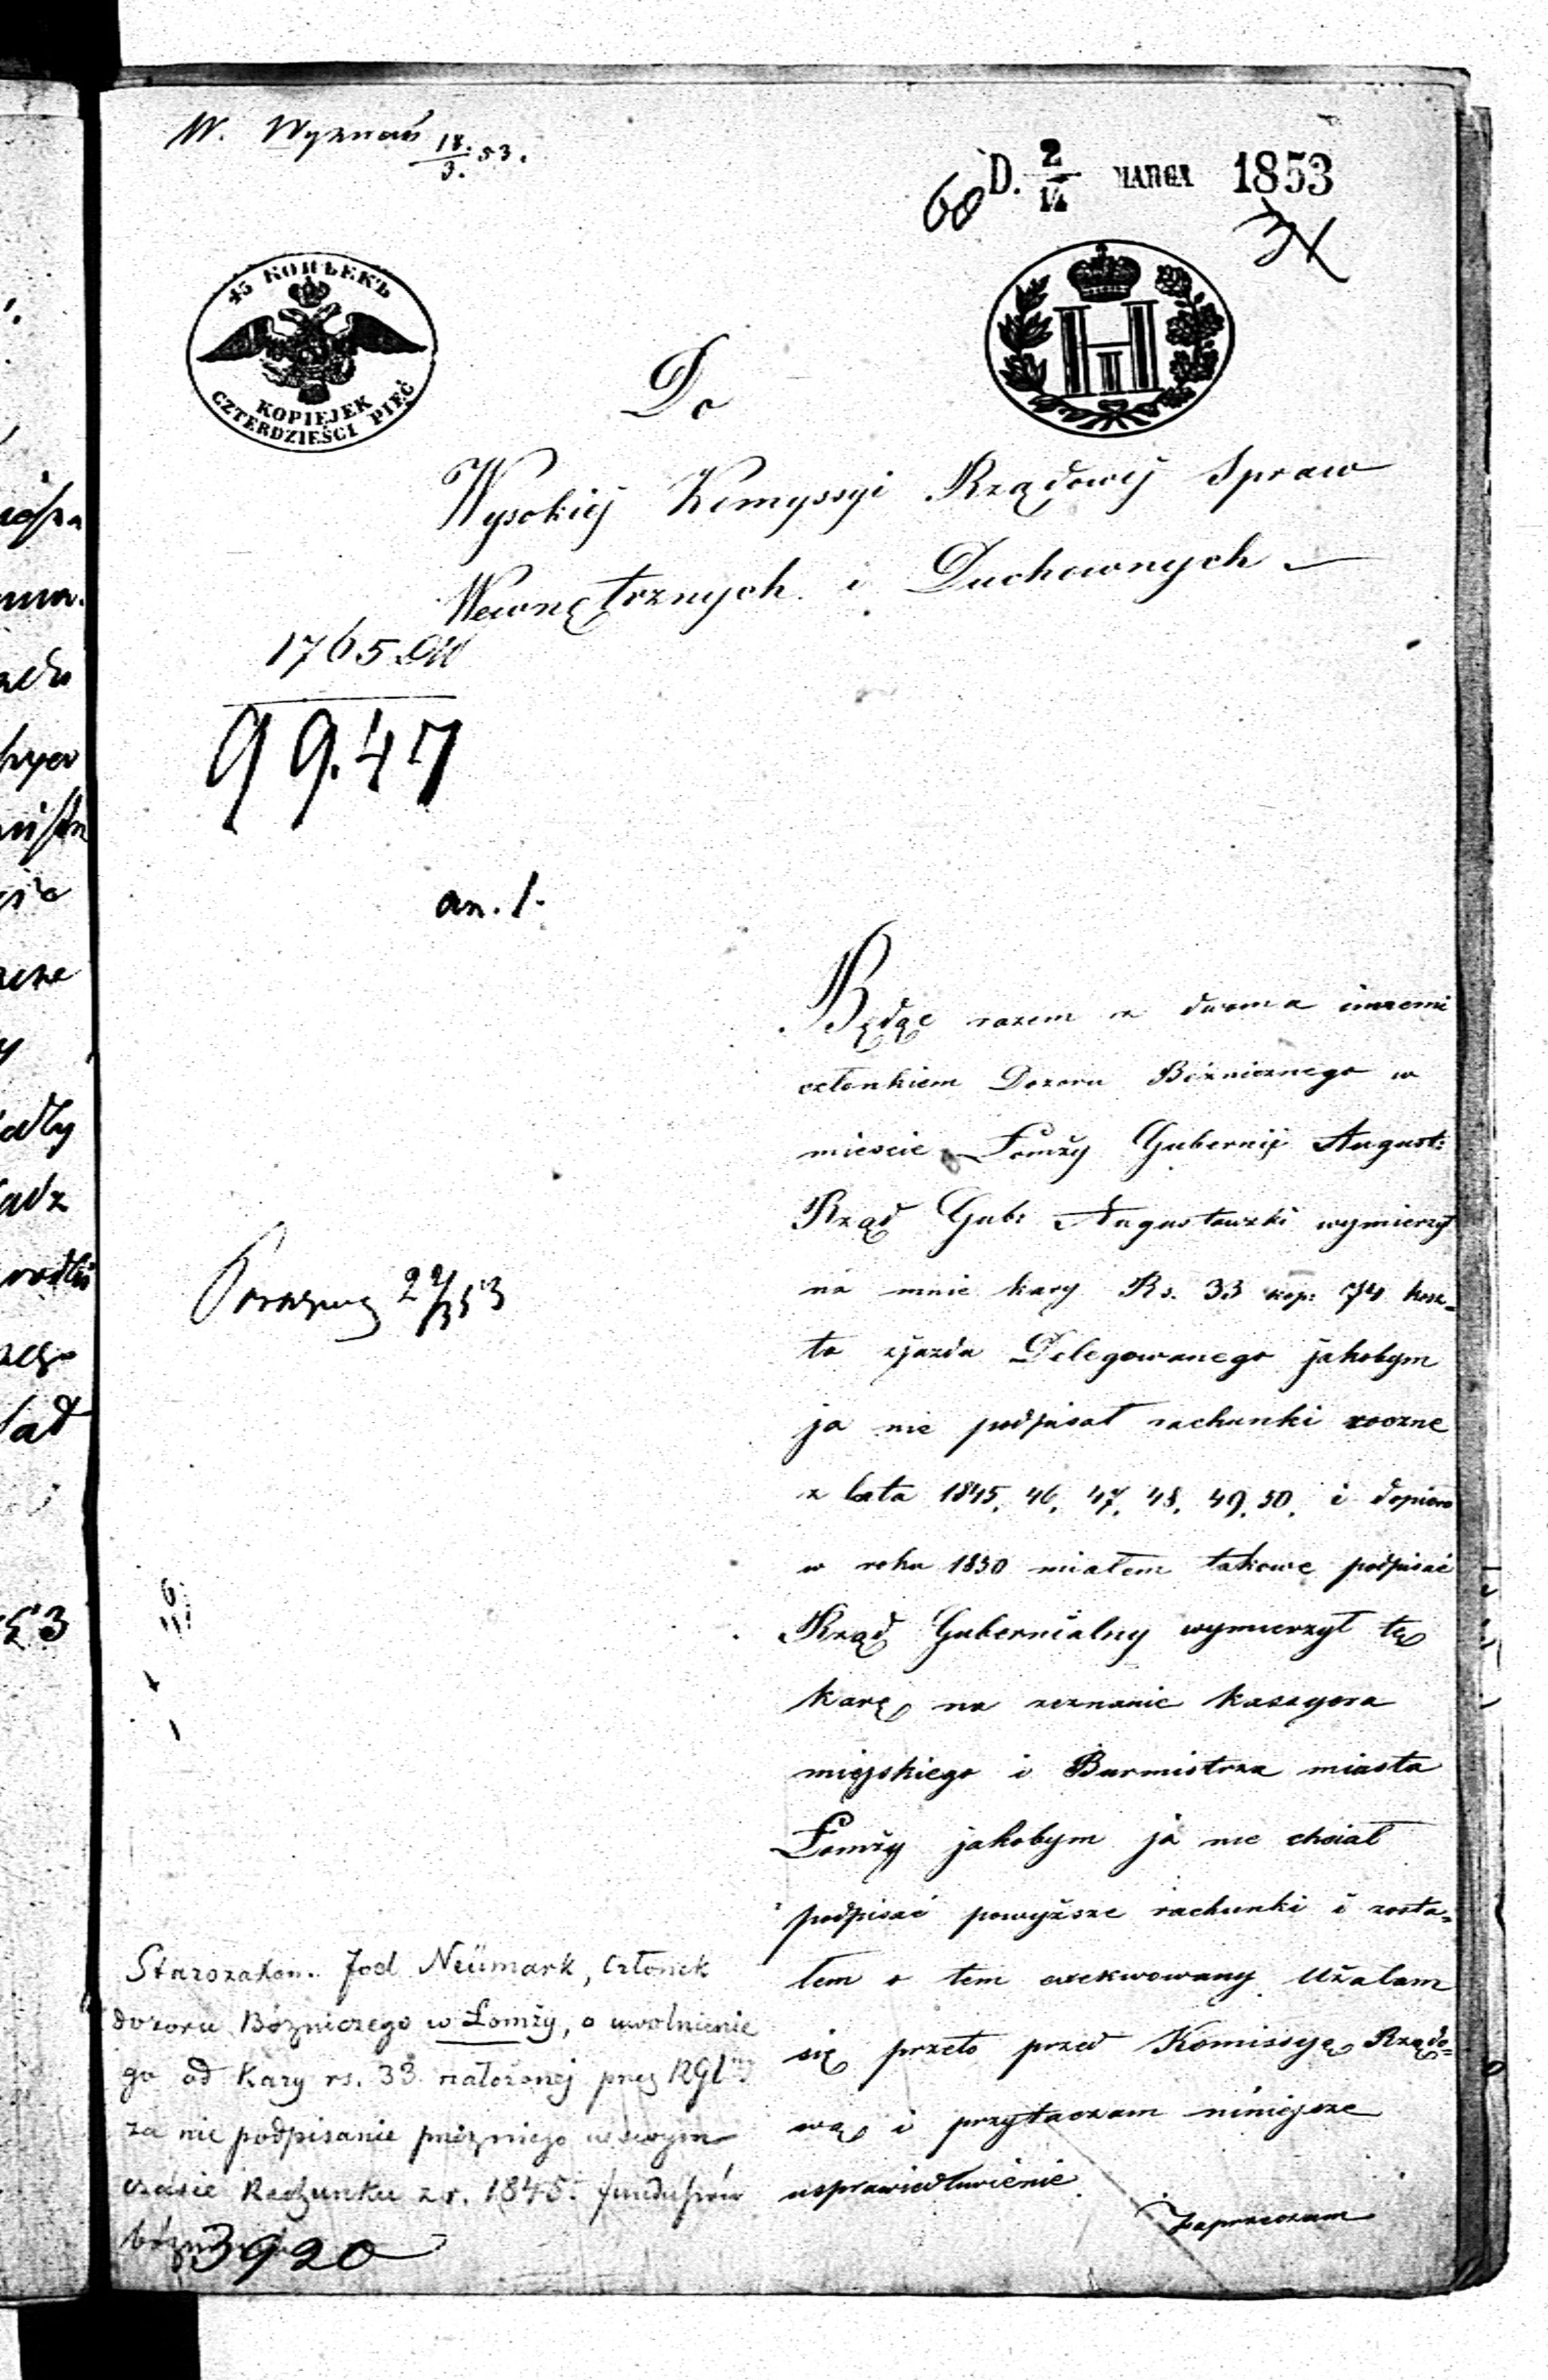 W. Wyznań 18./3. 53.
D. 2/14 MARCA 1853
60
45 КОПѢЕКЪ
KOPIEJEK
CZTERDZIEŚCI PIĘĆ
Do
Wysokiéj Komyssyi Rządowéj Spraw
Wewnętrznych i Duchownych
1765
99.47
an. 1.
Będąc razem z dwoma innemi
członkiem Dozoru Bóżnicznego w
mieście Łomży Gubernii August:
Rząd Gub: Augustowski wymierzył
na mnie kary Rs. 33 kop: 74 kosz=
ta zjazdu Delegowanego jakobym
ja nie podpisał rachunki roczne
z lata 1845, 46, 47, 48, 49, 50, i dopiero
w roku 1850 miałem takowe podpisać
Rząd Gubernialny wymierzył tę
karę na zeznanie Kassyera
miejskiego i Burmistrza miasta
Łomży jakobym ja nie chciał
podpisać powyższe rachunki i zosta=
łem o tem exekwowany Użalam
się przeto przed Komissyą Rządo=
wą i przytaczam niniejsze
usprawiedliwienie
Zaprzeczam
Starozakon. Joel Neümark, członek
dozoru Bózniczego w Łomży, o uwolnienie
go od Kary rs. 33 nałożonéj przez RGlny
za nie podpisanie w swym
czasie Rachunku z r. 1845. funduszów
3920